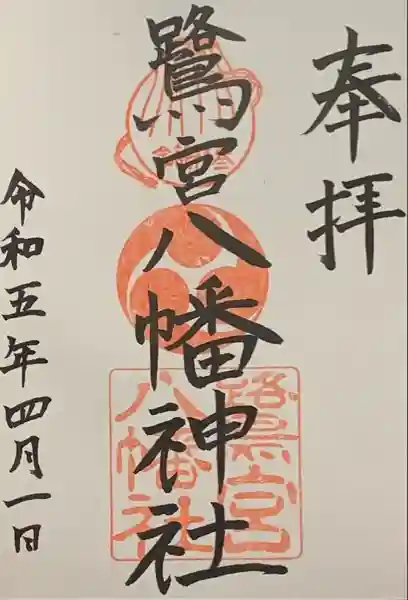 奉拝
鷺宮八幡神社
鷺宮
八幡社
令和五年四月一日